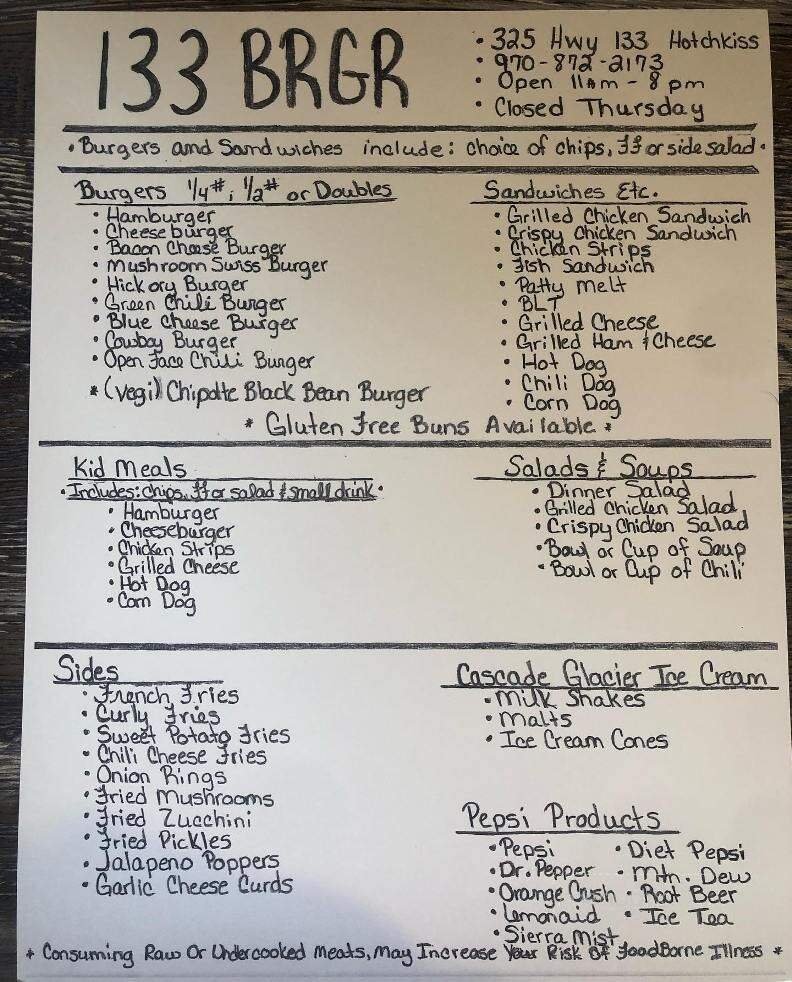 133 BRGR
• 325 Hwy 133 Hotchkiss
• 970-872-2173
• Open 11am - 8pm
• Closed Thursday
• Burgers and Sandwiches include: choice of chips, FF or side salad •
Burgers 1/4#, 1/2# or Doubles
• Hamburger
• Cheeseburger
• Bacon Cheese Burger
• Mushroom Swiss Burger
• Hickory Burger
• Green Chili Burger
• Blue Cheese Burger
• Cowboy Burger
• Open Face Chili Burger
* (Vegi) Chipolte Black Bean Burger
Sandwiches Etc.
• Grilled Chicken Sandwich
• Crispy Chicken Sandwich
• Chicken Strips
• Fish Sandwich
• Patty Melt
• BLT
• Grilled Cheese
• Grilled Ham & Cheese
• Hot Dog
• Chili Dog
• Corn Dog
* Gluten Free Buns Available *
Kid Meals
• Includes: chips, FF or salad & small drink •
• Hamburger
• Cheeseburger
• Chicken Strips
• Grilled Cheese
• Hot Dog
• Corn Dog
Salads & Soups
• Dinner Salad
• Grilled Chicken Salad
• Crispy Chicken Salad
• Bowl or Cup of Soup
• Bowl or Cup of Chili
Sides
• French Fries
• Curly Fries
• Sweet Potato Fries
• Chili Cheese Fries
• Onion Rings
• Fried Mushrooms
• Fried Zucchini
• Fried Pickles
• Jalapeno Poppers
• Garlic Cheese Curds
Cascade Glacier Ice Cream
• Milk Shakes
• Malts
• Ice Cream Cones
Pepsi Products
• Pepsi • Diet Pepsi
• Dr. Pepper • Mtn. Dew
• Orange Crush • Root Beer
• Lemonaid • Ice Tea
• Sierra Mist
* Consuming Raw Or Undercooked Meats, May Increase Your Risk Of FoodBorne Illness *